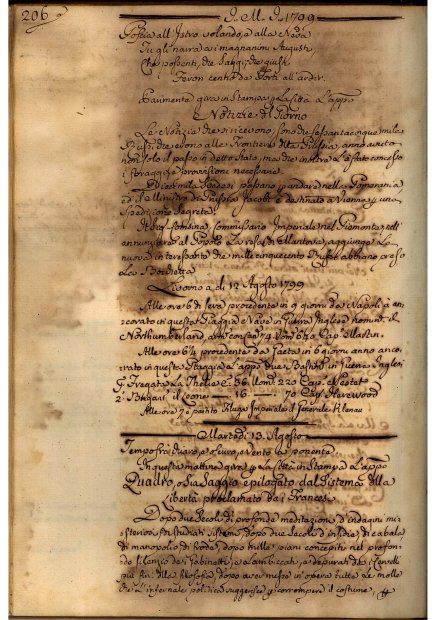 206
I. M. I. 1799
Poscia all'Istro volando, e alla Neva
Tu gli narra a i magnanimi Augusti,
Che possenti, che Saggi, che giusti
Feron cento da Forti all'ardir.
Parimente gira in Stampa p la Città L'app.
Notizie del Giorno
Le Notizie che si ricevono, sono che sessantacinque mila
Russi, che erano alle Frontiere della Prussia, anno avuto
non solo il passo in detto Stato, ma che inoltre L'è stato concesso
i foraggi, e provvisioni necessarie.
Diecimila Svedesi passano p andare nella Pomerania
ed il Ministro di Prussia Jacobi è destinato a Vienna p una
Spedizione Segreta.
Commissario Imperiale nel Piemonte, nell'
annunciare al Popolo La resa di Mantova, aggiunge La
nuova interessante che mille cinquecento Russi abbiano preso
La Bocchetta
Livorno a dì 12 Agosto 1799
Alle ore 6 di sera procedente in 9 giorni da Napoli à an-
corato in questa Spiaggia Nave in Guerra Inglese nomin. il
Northumberland, 74 640 Cap. Martin.
Alle ore 6 1/4 procedente da Gaeta in 6 giorni anno anco-
rato in questa Spiaggia L'app. due Bastim. in Guerra Inglesi
Fregata La Thalie C. 36. Uom. 220 Cap.
2. Brigant. il Leone — 16. — 70 Cap. Harewood
Alle ore 7 è partito Imperiale il Generale Klenau
Martedì 13. Agosto
Tempo fra chiaro, e scuro, e vento a ponente
In questa mattina gira p la Città in Stampa L'app.
Quadro, o sia Saggio epilogato dal Sistema della
Libertà proclamato da i Francesi
Dopo due Secoli di profonde meditazioni, d'indagini mi-
steriose, di studiati sistemi, dopo due Secoli d'insidie, di cabale
di manopolio, di frode, dopo mille piani concepiti nel profon-
do silenzio de i Gabinetti, e lambiccati, e depurati da i Concili
più fini della filosofia, dopo aver messe in opera tutte le molle
che l'infernale politica suggerisce p corrompere il costume,